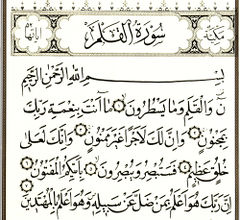 سورة القلم
مكية
بسم الله الرحمن الرحيم
ن والقلم وما يسطرون ما أنت بنعمة ربك
بمجنون وإن لك لأجرا غير ممنون وإنك لعلى
خلق عظيم فستبصر ويبصرون بأييكم المفتون
إن ربك هو أعلم بمن ضل عن سبيله وهو أعلم بالمهتدين